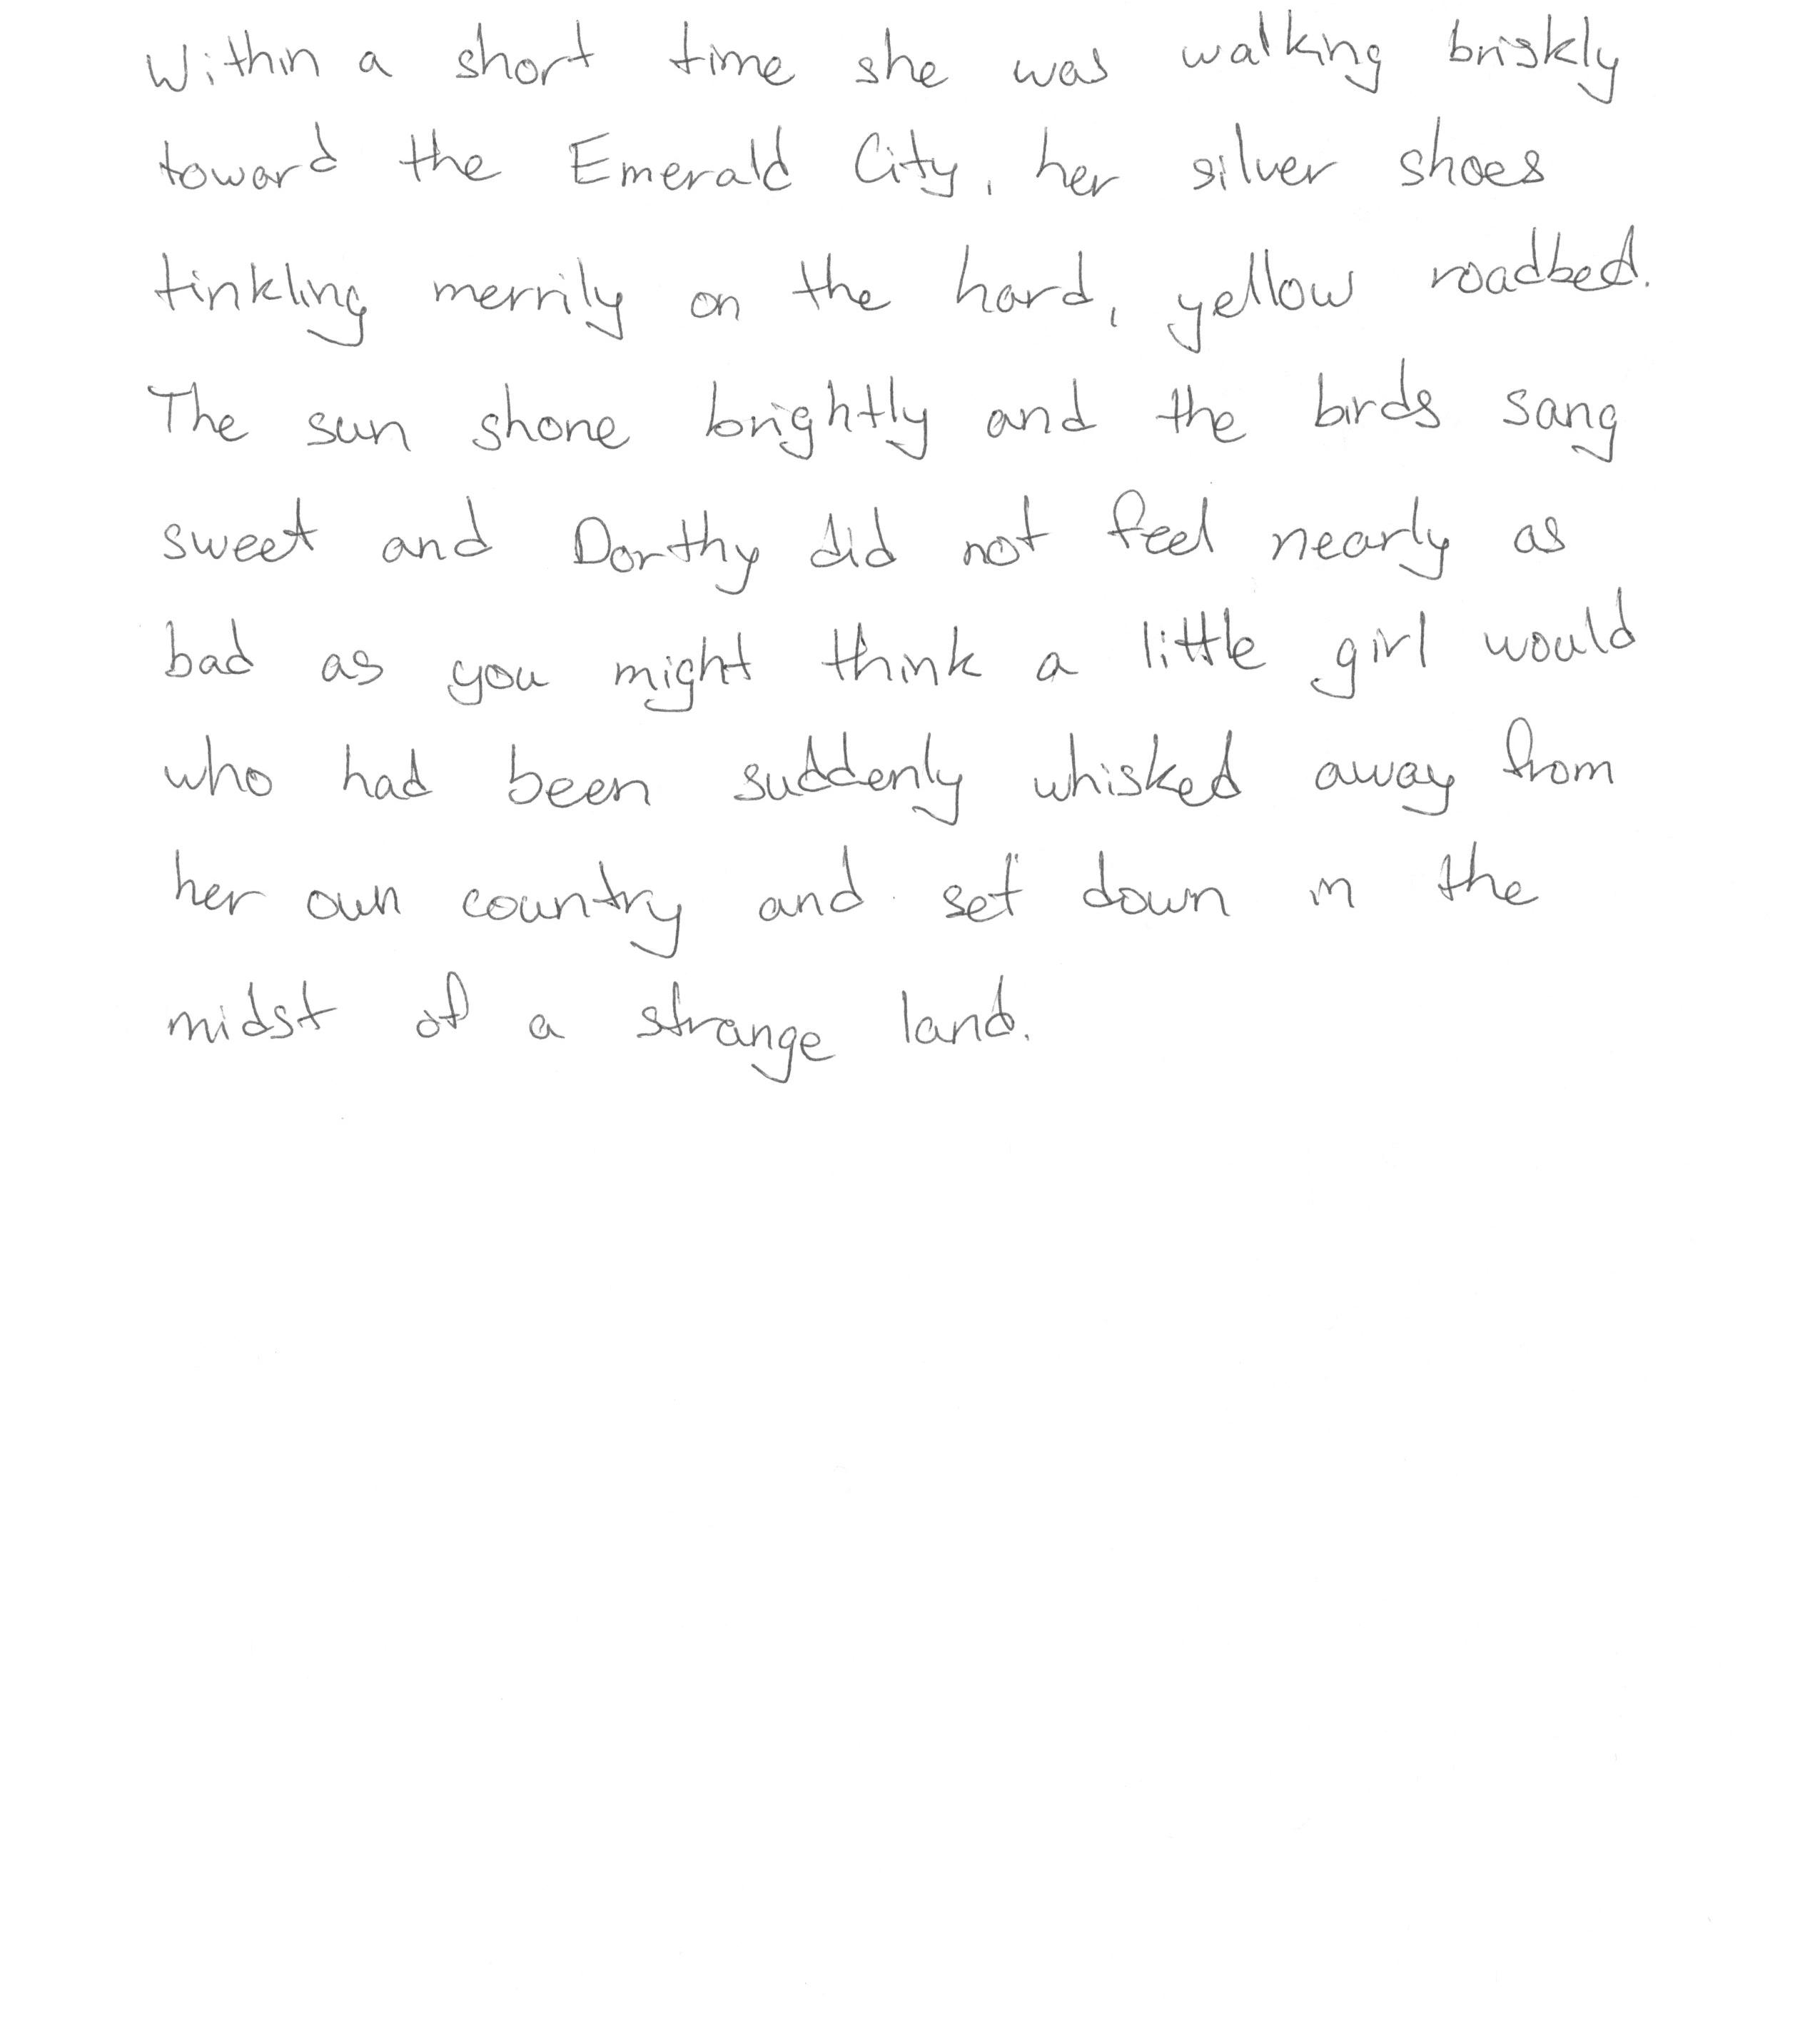 Within a short time she was walking briskly
toward the Emerald City, her silver shoes
tinkling merrily on the hard, yellow roadbed.
The sun shone brightly and the birds sang
sweet and Dorthy did not feel nearly as
bad as you might think a little girl would
who had been suddenly whisked away from
her own country and set down in the
midst of a strange land.